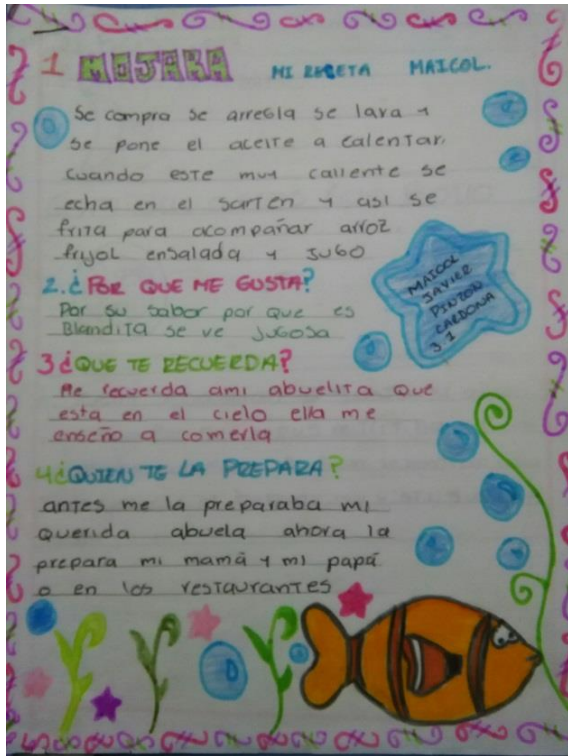 1 MOJARA MI RECETA MAICOL.
Se compra se arregla se lava y
se pone el aceite a calentar,
cuando este muy caliente se
echa en el sarten y asi se
frita para acompañar arroz
frijol ensalada y JUGO
2.¿POR QUE ME GUSTA?
Por su sabor por que es
Blandita se ve JUGOSA
MAICOL
JAVIER
PINTON
CARDONA
3.1
3¿QUE TE RECUERDA?
Me recuerda ami abuelita que
esta en el cielo ella me
enseño a comerla
4¿QUIEN TE LA PREPARA?
antes me la preparaba mi
querida abuela ahora la
prepara mi mamá y mi papá
o en los restaurantes